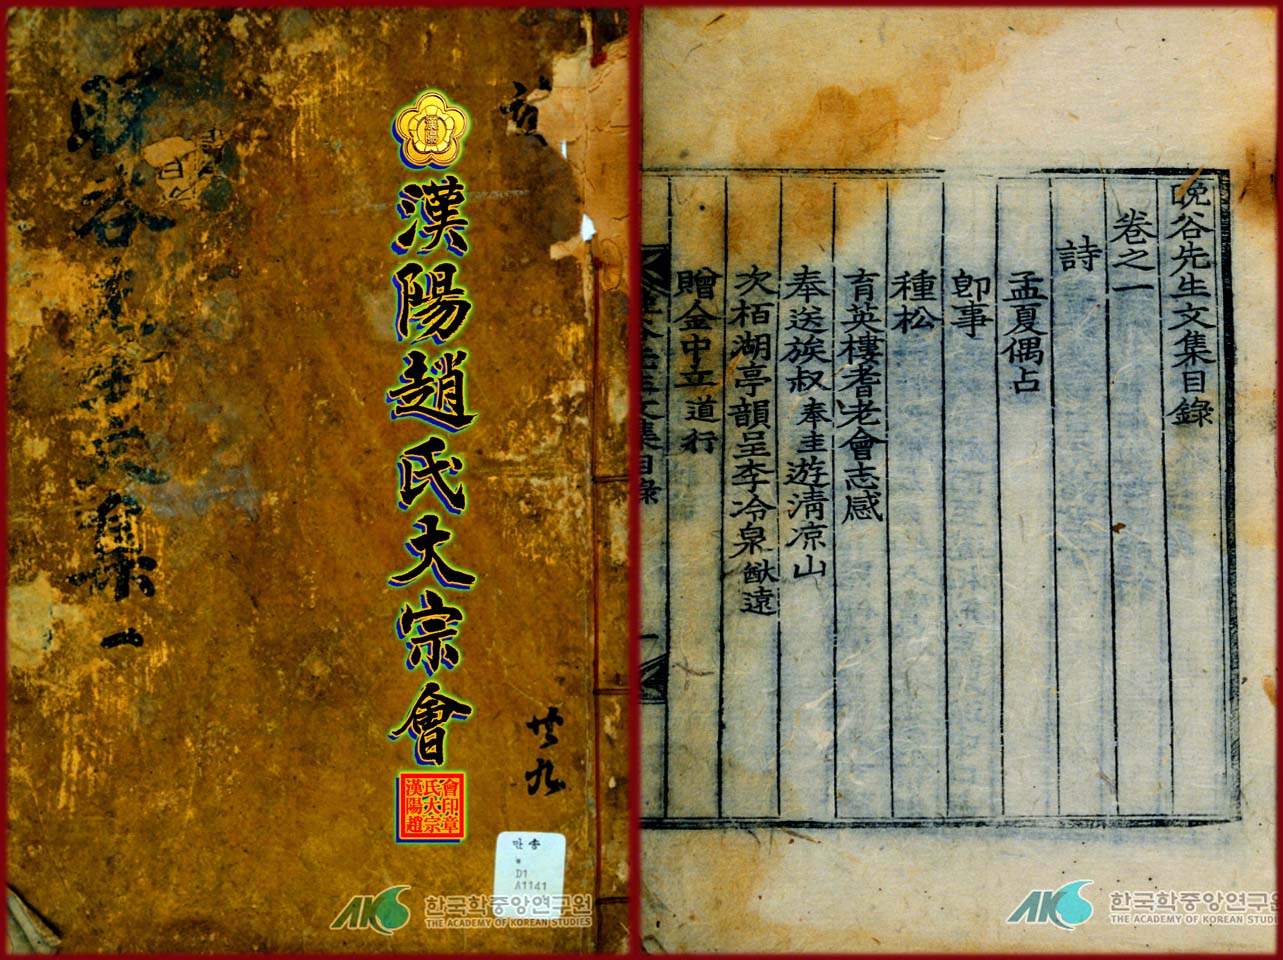 谷
集一
漢陽
漢陽趙氏大宗會
會印章
氏大宗
漢陽趙
共九
만송
*
D1
A1141
AKS 한국학중앙연구원
THE ACADEMY OF KOREAN STUDIES
晩谷先生文集目錄
卷之一
詩
孟夏偶占
卽事
種松
育英樓耆老會志感
奉送族叔奉圭遊淸凉山
次栢湖亭韻呈李冷泉猷遠
贈金中立道行
AKS 한국학중앙연구원
THE ACADEMY OF KOREAN STUDIES